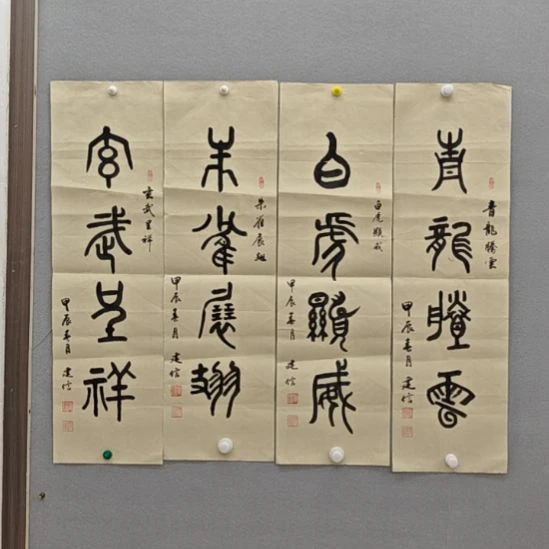 青龍騰雲
青龍騰雲
甲辰春月 建信
白虎顯威
白虎顯威
甲辰春月 建信
朱雀展翅
朱雀展翅
甲辰春月 建信
玄武呈祥
玄武呈祥
甲辰春月 建信